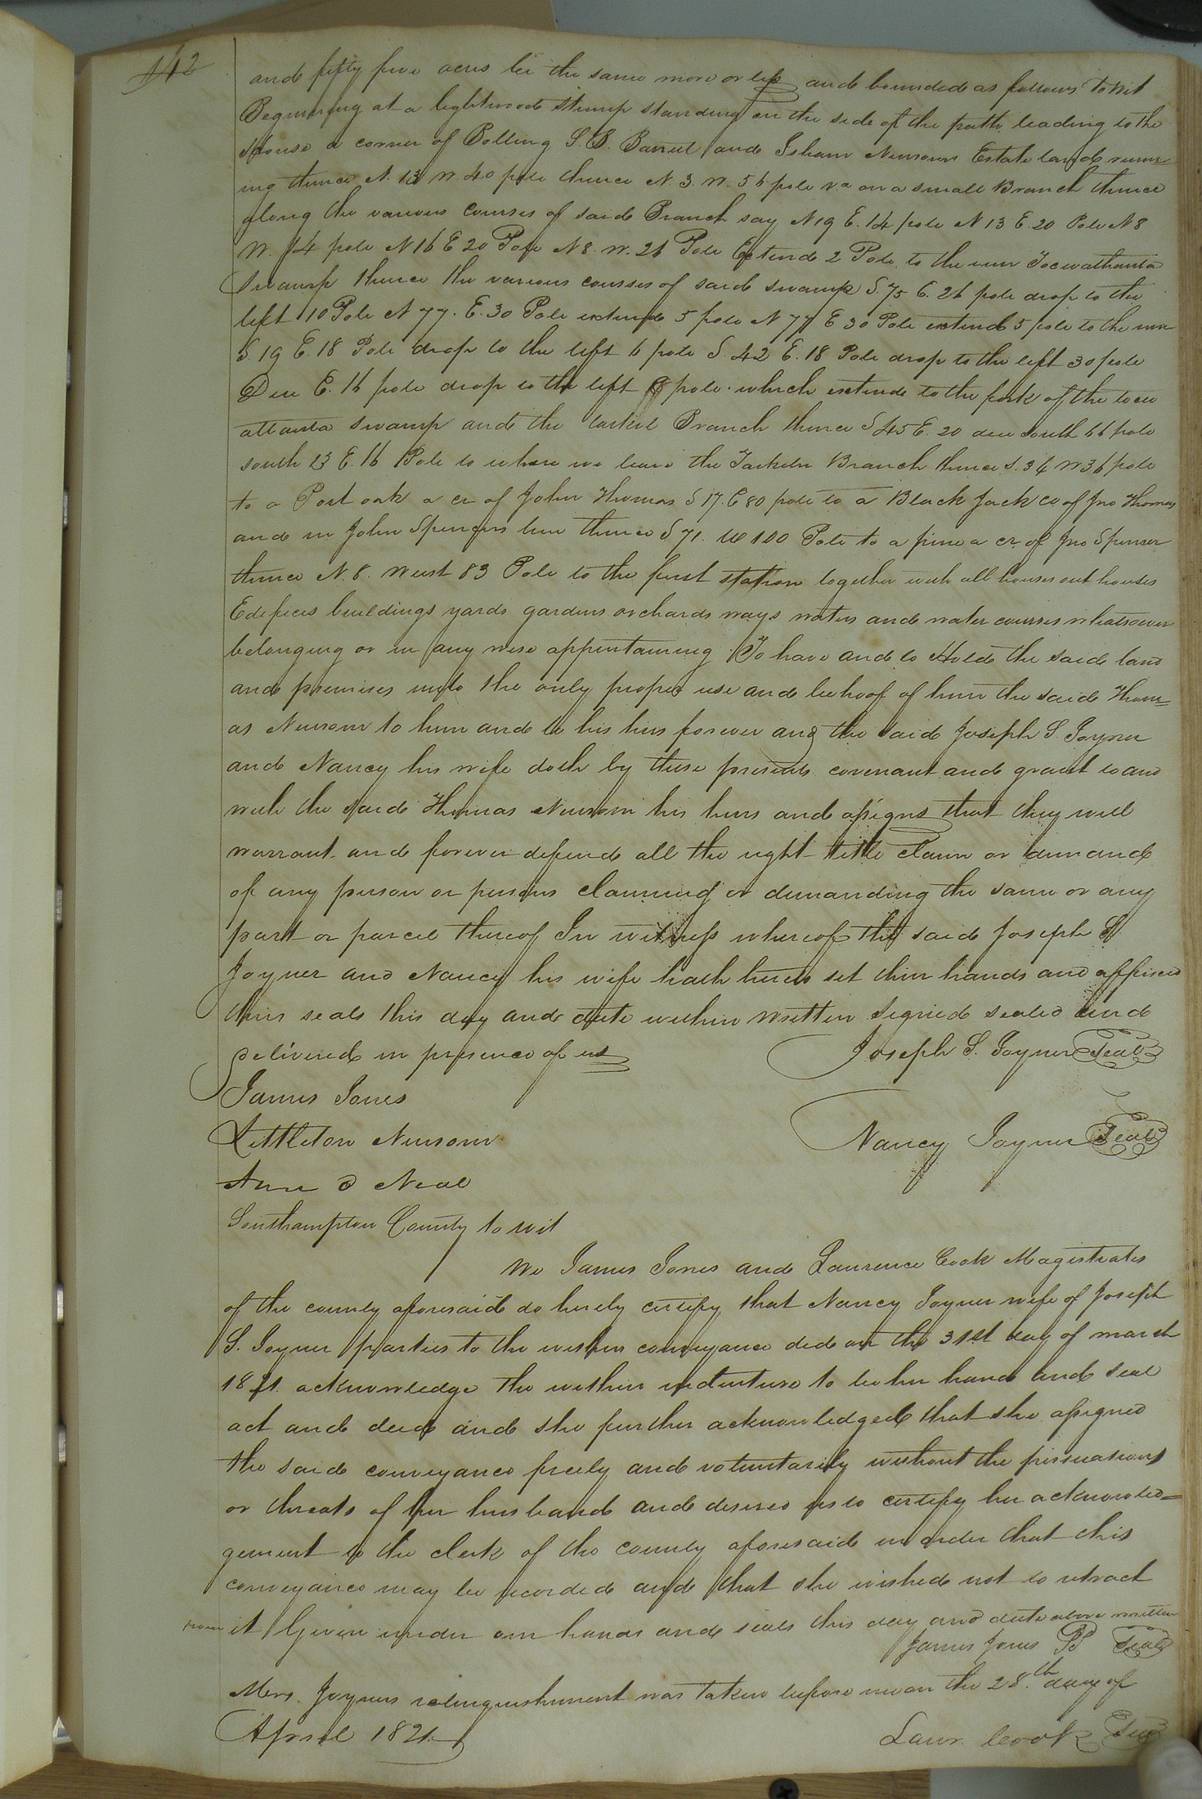 142
and fifty five acres be the same more or less and bounded as follows to wit
Beginning at a lightwood stump standing on the side of the path leading to the
House a corner of Bolling S. B. Barrel and Isham Newsoms Estate land runn-
ing thence N. 13 W. 40 pole thence N 3. W. 56 pole on a small Branch thence
along the various courses of said Branch say N 19 E. 14 pole N 13 E. 20 Pole N 8
W. 14 pole N 16 E 20 Pole N 8. W. 26 Pole Extend 2 Pole to the run
Swamp thence the various courses of said swamp S. 75 E. 26 pole drop to the
left 10 Pole N 77. E. 30 Pole extend 5 pole N 77 E 30 Pole extend 5 pole to the run
S 19 E. 18 Pole drop to the left 6 pole S. 42 E. 18 Pole drop to the left 30 pole
Due E. 16 pole drop to the left 8 pole which extends to the fork of the
swamp and the Branch thence S 45 E. 20 due South 66 pole
south 13 E. 16 Pole to where we leave the Branch thence S. 34 W 36 pole
to a Post oak a cr of John Thomas S 17. E 80 pole to a Black Jack cr of Jno Thomas
and in John Spencers line thence S 71. W 100 Pole to a pine a cr of Jno Spenser
thence N. 8. West 83 Pole to the first station together with all houses out houses
Edifices buildings yards gardens orchards ways waters and water courses whatsoever
belonging or in any wise appertaining To have and to Hold the said land
and premises unto the only proper use and behoof of him the said Thom=
as Newsom to him and to his heirs forever and the said Joseph S. Joyner
and Nancy his wife doth by these presents covenant and grant to and
with the said Thomas Newsom his heirs and assigns that they will
warrant and forever defend all the right title claim or demand
of any person or persons claiming or demanding the same or any
part or parcel thereof In witness whereof the said Joseph S.
Joyner and Nancy his wife hath hereto set their hands and affixed
their seals this day and date within written Signed sealed and
delivered in presence of us Joseph S. Joyner Seal
James Jones
Littleton Newsom Nancy Joyner Seal
Neal
Southampton County to wit
We James Jones and Laurence Cook Magistrates
of the county aforesaid do hereby certify that Nancy Joyner wife of Joseph
S. Joyner parties to the within conveyance did on the 31st day of march
1821 acknowledge the within indenture to be her hand and seal
act and deed and she further acknowledged that she assigned
the said conveyance freely and voluntarily without the persuasions
or threats of her husband and desired us to certify her acknowled=
gement to the clerk of the county aforesaid in order that this
conveyance may be recorded and that she wished not to retract
from it Given under our hands and seals this day and date above written
James Jones Seal
Mrs. Joyners relinquishment was taken before me on the 28.th day of
April 1821 Laur. Cook Seal